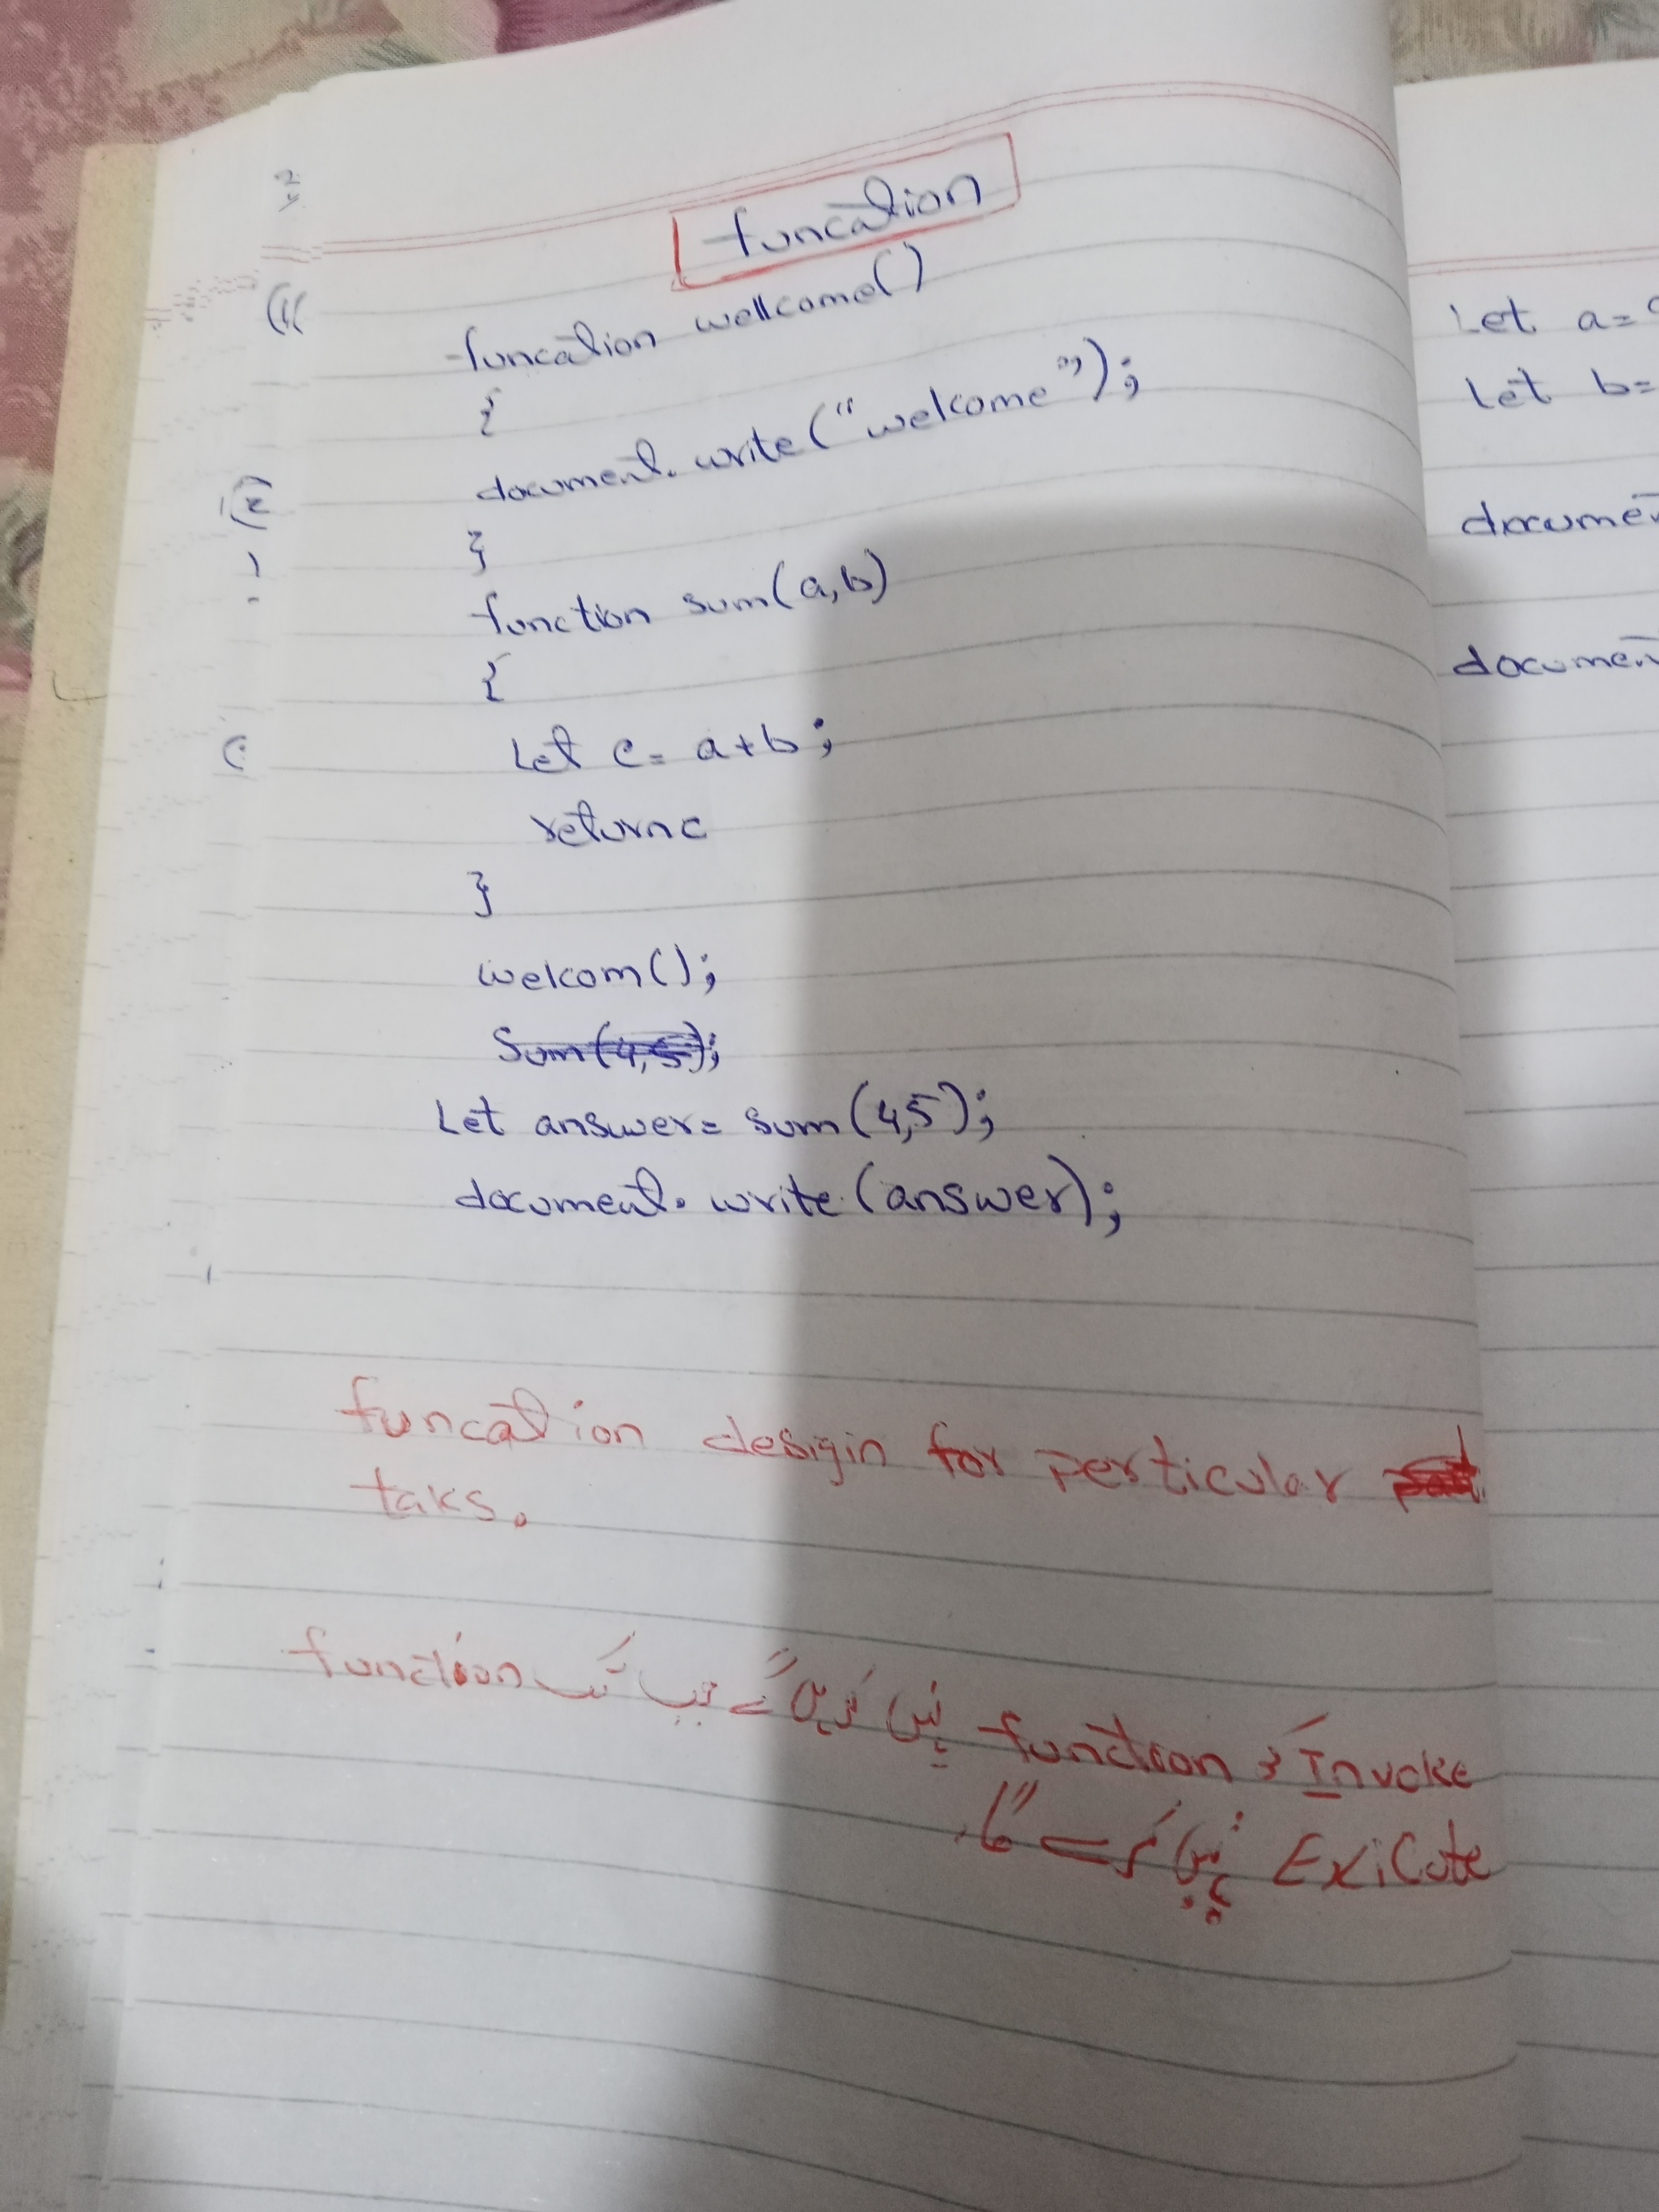 funcation
funcation wellcome()
{
document.write("welcome");
}
function sum(a,b)
{
Let c= a+b;
return c
}
welcom();
Sum(4,5);
Let answer= sum(4,5);
document.write(answer);
funcation desigin for perticular
taks.
function جب تک نہیں کریں گے function کو Invoke
نہیں کرے گا Exicute
Let a=
Let b=